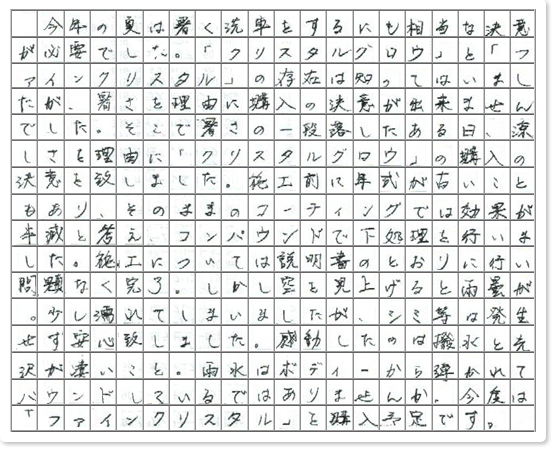 今年の夏は暑く洗車をするにも相当な決意
が必要でした。「クリスタルグロウ」と「フ
ァインクリスタル」の存在は知ってはいまし
たが、暑さを理由に購入の決意が出来ません
でした。そこで暑さの一段落したある日、涼
しさを理由に「クリスタルグロウ」の購入の
決意を致しました。施工前に年式が古いこと
もあり、そのままのコーティングでは効果が
半減と答え、コンパウンドで下処理を行いま
した。施工については説明書のとおりに行い
問題なく完了。しかし空を見上げると雨雲が
。少し濡れてしまいましたが、シミ等は発生
せず安心致しました。感動したのは撥水と光
沢が凄いこと。雨水はボディーから弾かれて
バウンドしているではありませんか。今度は
「ファインクリスタル」を購入予定です。